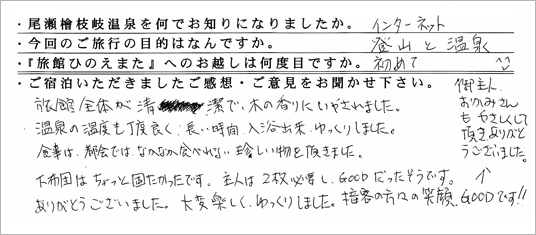 ・尾瀬檜枝岐温泉を何でお知りになりましたか。 インターネット
・今回のご旅行の目的はなんですか。 登山と温泉
・『旅館ひのえまた』へのお越しは何度目ですか。 初めて
・ご宿泊いただきましたご感想・ご意見をお聞かせ下さい。
旅館全体が清潔で、木の香りにいやされました。
温泉の温度も丁度良く、長い時間、入浴出来、ゆっくりしました。
食事は、都会では、なかなか食べれない珍しい物を頂きました。
下布団はちょっと固たかったです。主人は2枚必要し、GOODだったそうです。
ありがとうございました。大変楽しく、ゆっくりしました。接客の方々の笑顔、GOODです!!
御主人、
おかみさん
もやさしくして
頂きありがと
うございました。